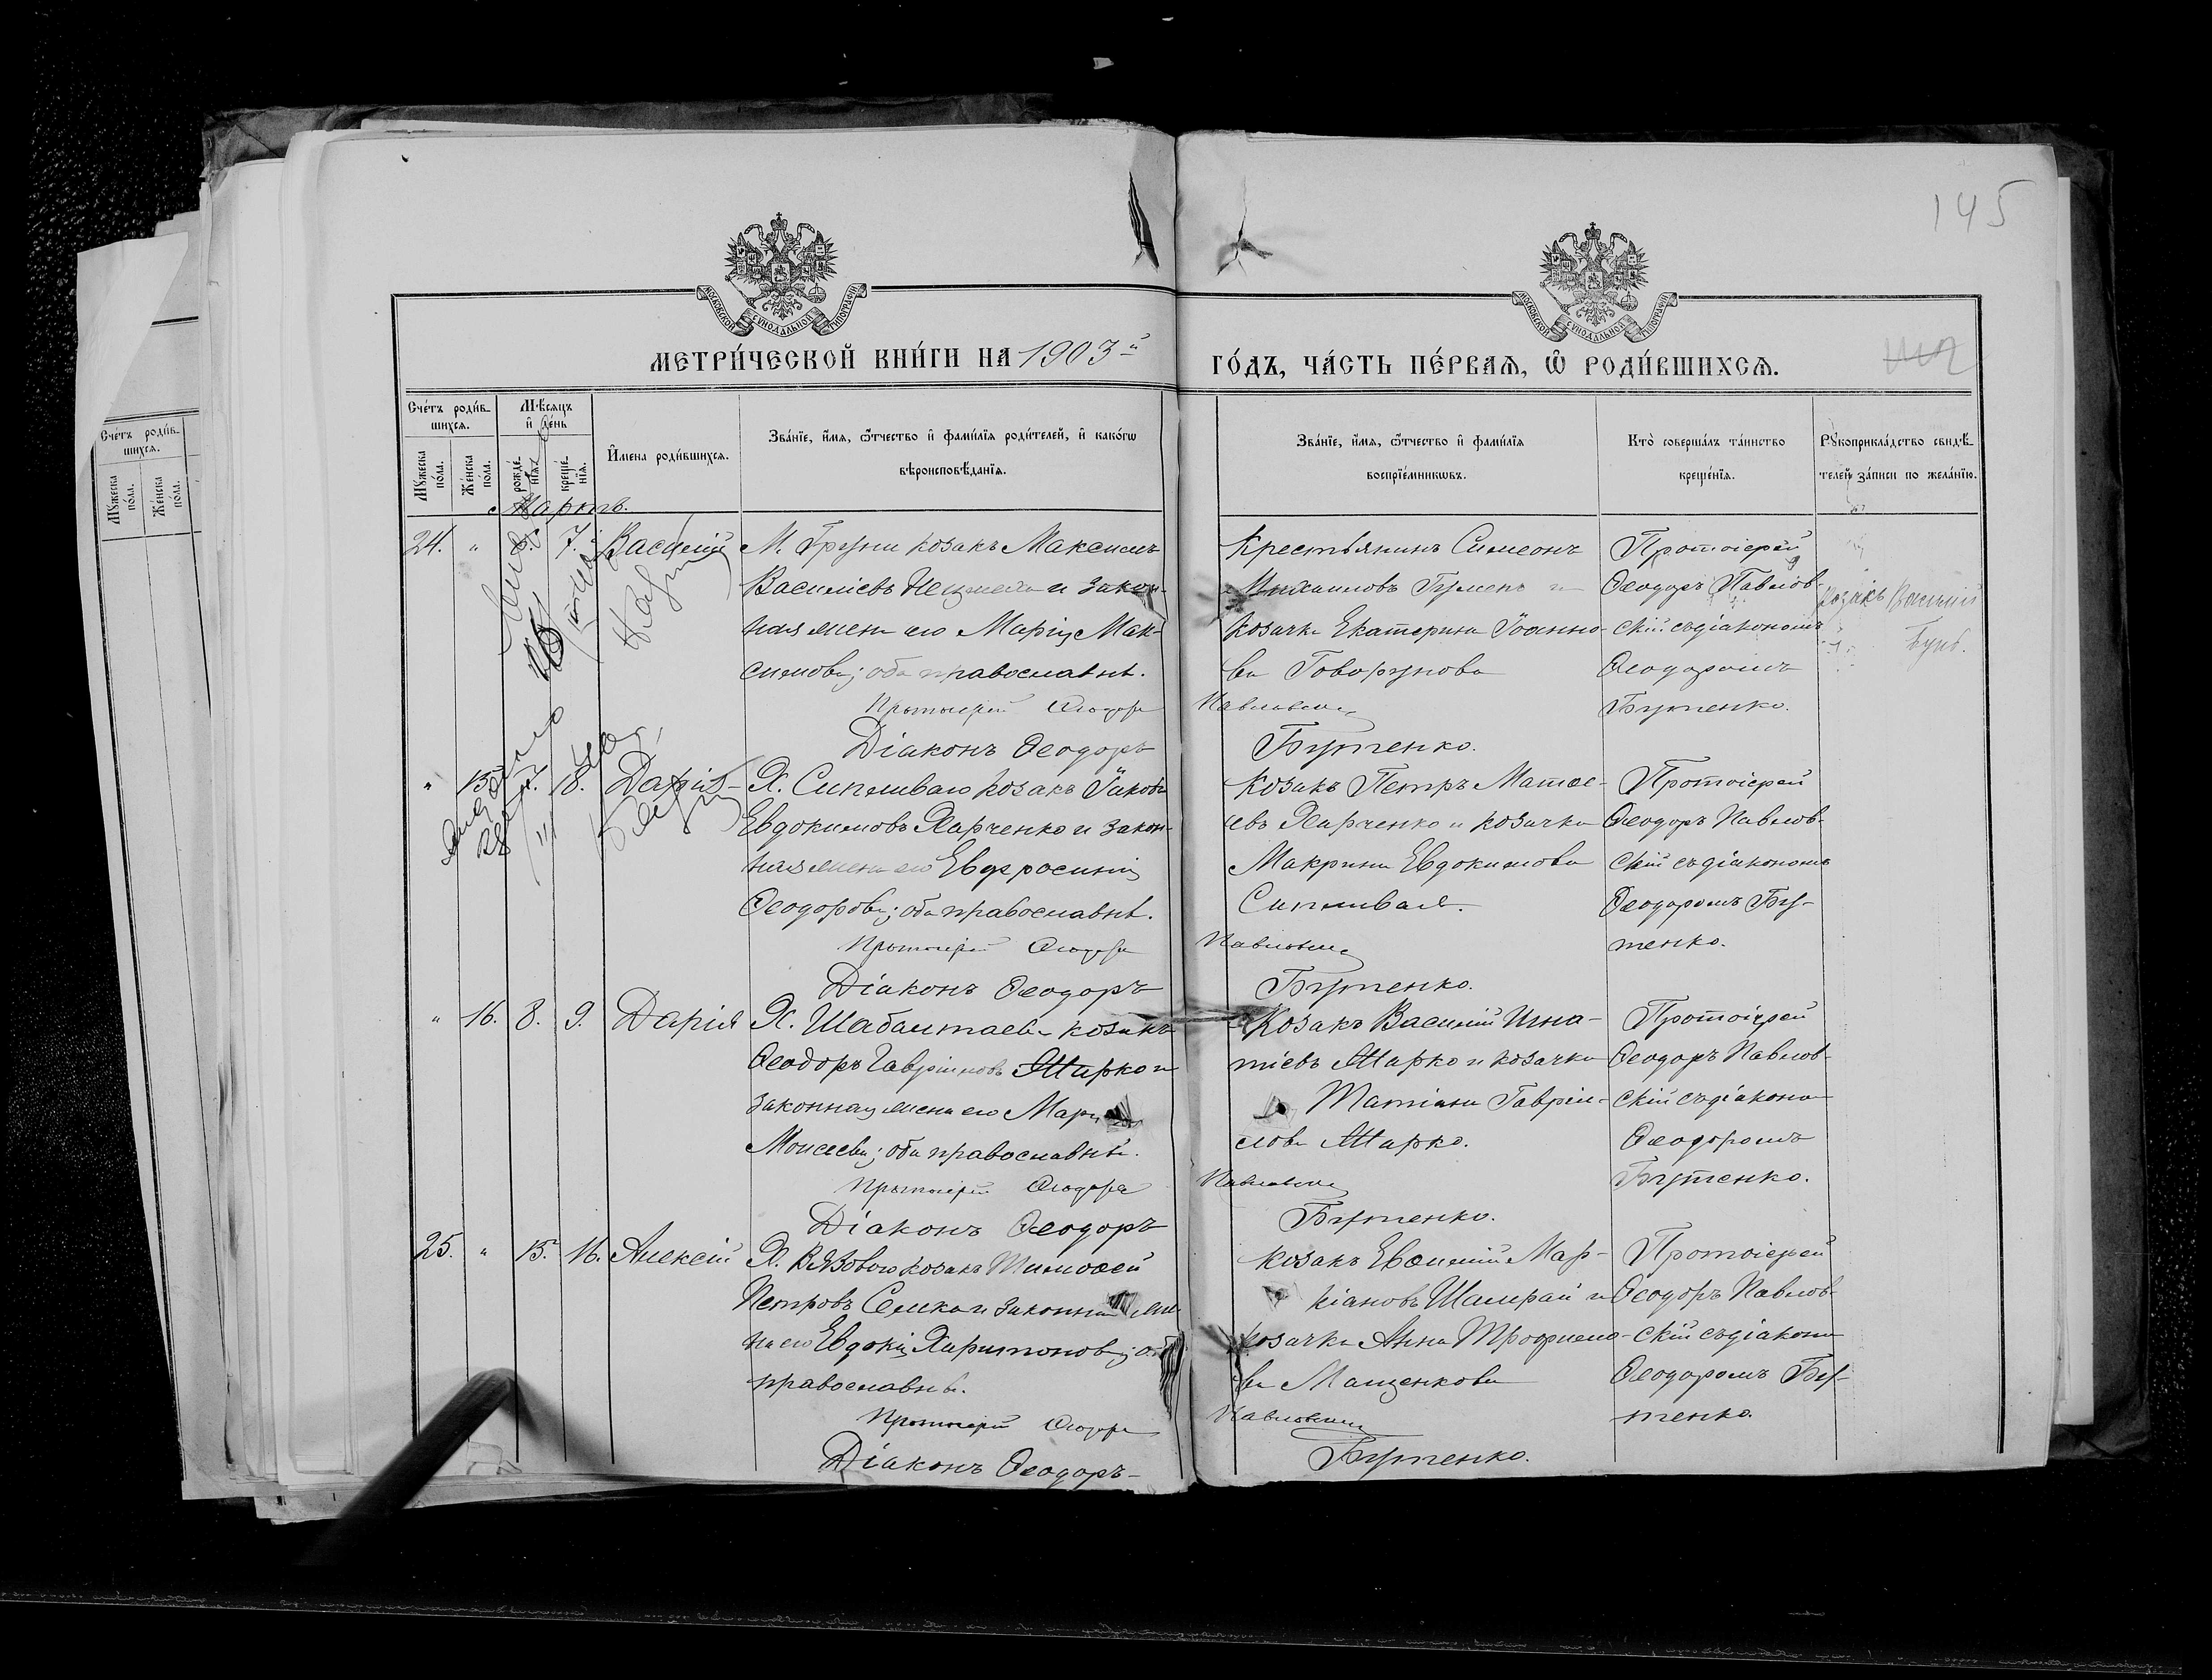 145
МОСКОВСКОЙ СѴНОДАЛЬНОЙ ТИПОГРАФІИ
МОСКОВСКОЙ СѴНОДАЛЬНОЙ ТИПОГРАФІИ
МЕТРИ́ЧЕСКОЙ КНИ́ГИ НА 1903й ГО́ДЪ, ЧА́СТЬ ПЕ́РВАѦ, Ѽ РОДИ́ВШИХСѦ.
Сче́тъ роди́в-
шихся.
Му́жеска по́ла.
Же́нска по́ла.
Сче́тъ роди́в-
шихся.
Му́жеска по́ла.
Же́нска по́ла.
Мѣ́сяцъ
и҆ де́нь
рожде́-
нїя.
креще́-
нїя.
И҆мена роди́вшихся.
Зва́нїе, и҆́мя, ѻ҆́тчество и҆ фами́лїя роди́телей, и҆ како́гѡ
вѣроисповѣ́данїя.
Зва́нїе, и҆́мя, ѻ҆́тчество и҆ фами́лїя
воспрїе́мникѡвъ.
Кто̀ соверша́лъ та́инство
креще́нїя.
Рꙋкоприкла́дство свидѣ́-
телей за́писи по жела́нїю.
Мартъ.
24. " 7. Василій
М. Груни козакъ Максимъ
Василіевъ и закон-
ная жена его Марія Мак-
симова; оба православны.
Протоіерей Ѳеодоръ
Діаконъ Ѳеодоръ
Крестьянинъ Симеонъ
Михаиловъ и
козачка Екатерина Іоанно-
ва Говорунова
Павловскій
Бутенко.
Протоіерей
Ѳеодоръ Павлов-
скій съ діакономъ
Ѳеодоромъ
Бутенко.
козакъ Василій
" 15. 7. 18. Дарія
Х. Сипливаго козакъ Іаковъ
Евдокимовъ Харченко и закон-
ная жена его Евфросинія
Ѳеодорова; оба православны.
Протоіерей Ѳеодоръ
Діаконъ Ѳеодоръ
Козакъ Петръ Матѳе-
евъ Харченко и козачка
Макрина Евдокимова
Сипливая.
Павловскій
Бутенко.
Протоіерей
Ѳеодоръ Павлов-
скій съ діакономъ
Ѳеодоромъ Бу-
тенко.
" 16. 8. 9. Дарія
Х. Шабалтаева козакъ
Ѳеодоръ Гавріиловъ Марко и
законная жена его Марія
Моисеева; оба православны.
Протоіерей Ѳеодоръ
Діаконъ Ѳеодоръ
Козакъ Василій Игна-
тіевъ Марко и козачка
Татіана Гавріи-
лова Марко.
Павловскій
Бутенко.
Протоіерей
Ѳеодоръ Павлов-
скій съ діакономъ
Ѳеодоромъ
Бутенко.
25. " 15. 16. Алексій
Х. Вязоваго козакъ Тимоѳей
Петровъ Семка и законная же-
на его Евдокія Харитонова; оба
православны.
Протоіерей Ѳеодоръ
Діаконъ Ѳеодоръ
Козакъ Евѳимій Мар-
кіановъ Шамрай и
козачка Анна Трофимо-
ва Мащенкова
Павловскій
Бутенко.
Протоіерей
Ѳеодоръ Павлов-
скій съ діакономъ
Ѳеодоромъ Бу-
тенко.